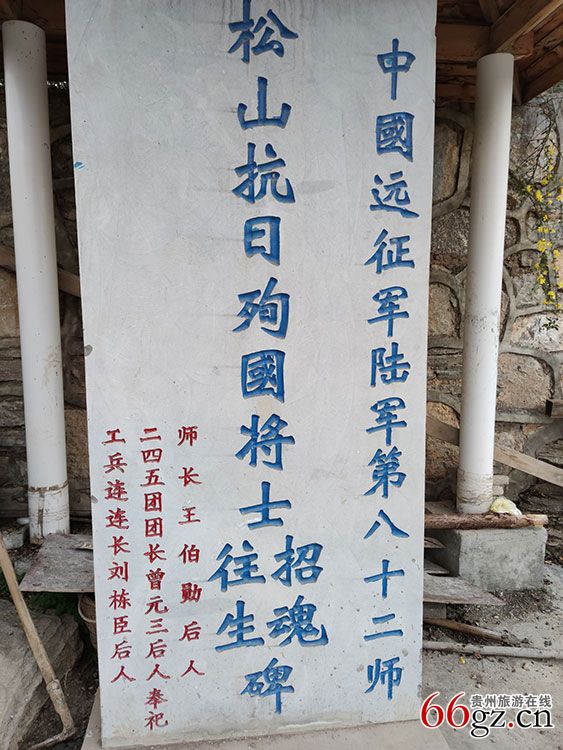 中國远征军陆军第八十二师
松山抗日殉國将士招魂往生碑
师长王伯勋后人
二四五团团长曾元三后人奉祀
工兵连连长刘栋臣后人
66gz.cn
贵州旅游在线